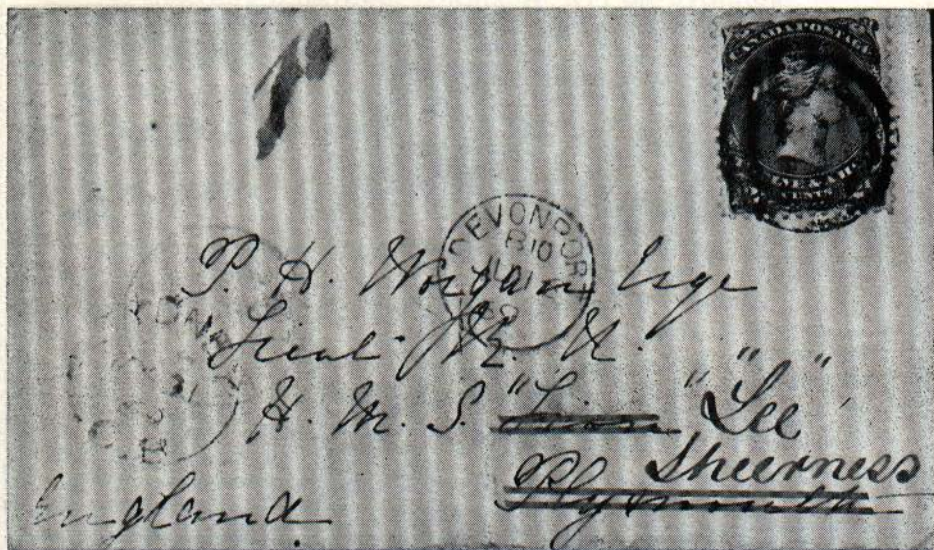 CANADA POSTAGE
DEVONPORT
B 10
P. H. Worgan Esqe
Lieut R. N.
H. M. S. "Lion" "Lee"
Sheerness
Plymouth
England